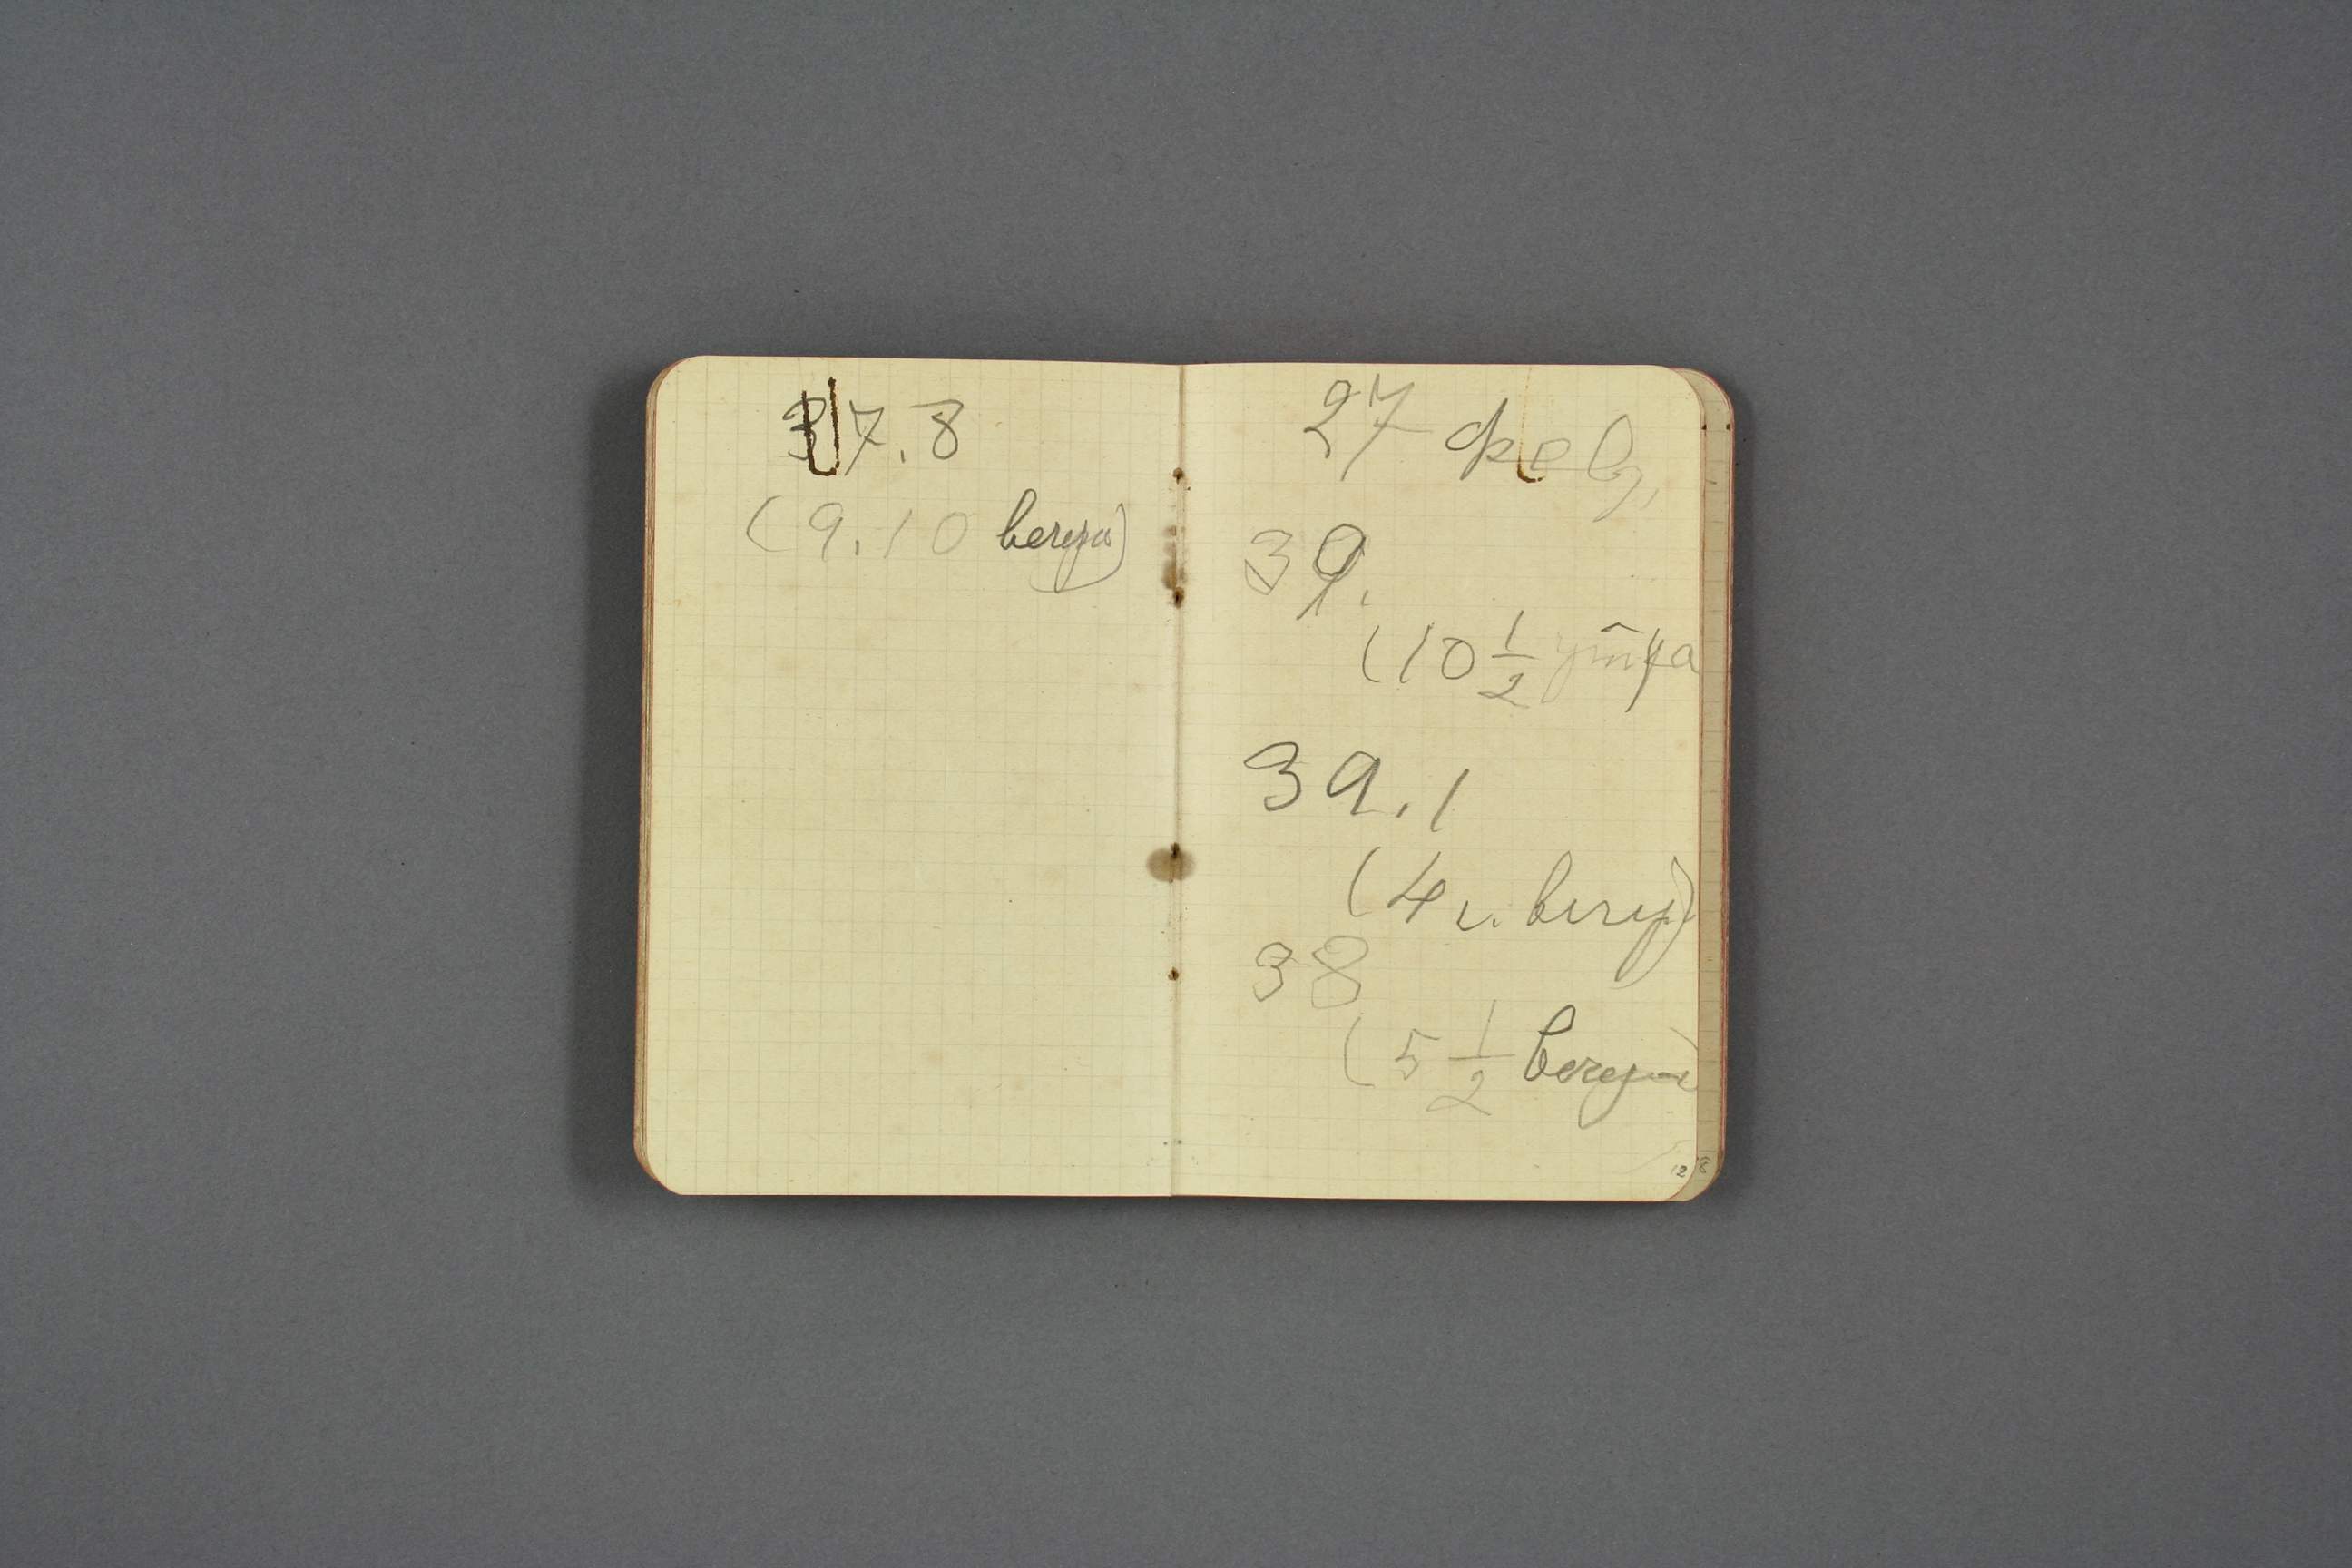 37.8
(9.10 вечера)
27 фев,
39.
(10 1/2 утра
39.1
(4 ч. вечер)
38
(5 1/2 вечера)
128